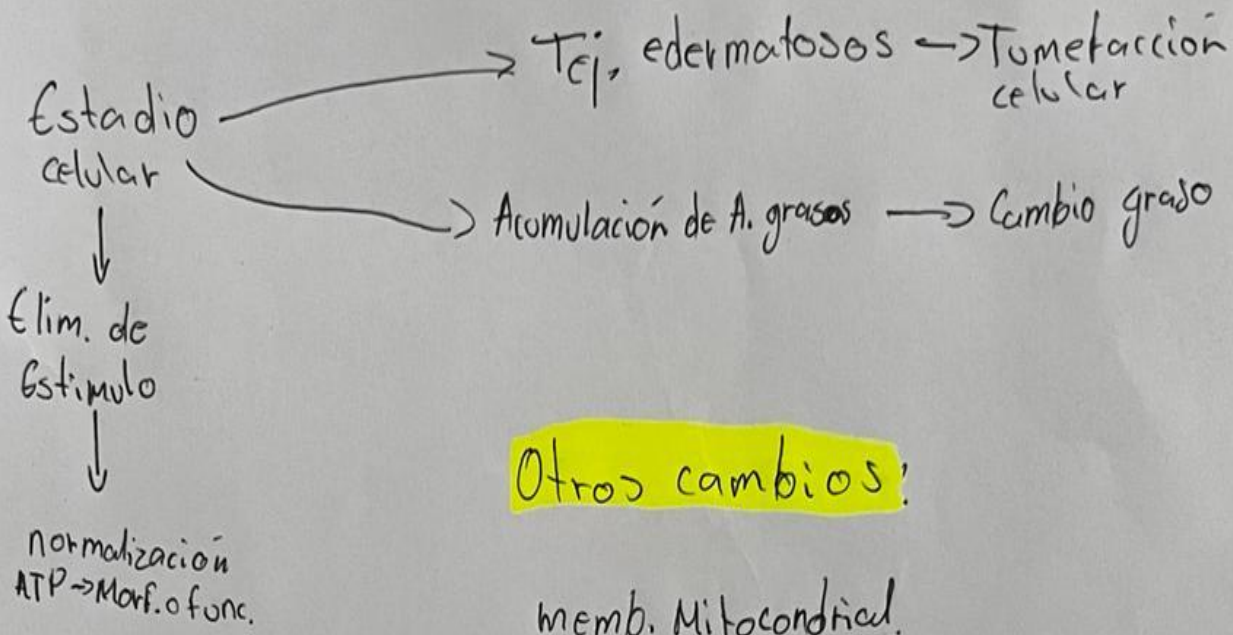 Estadio
celular
→ Tej. edermatosos → Tumefacción
celular
→ Acumulación de A. grasos → Cambio graso
↓
Elim. de
Estimulo
↓
normalización
ATP→Morf. o func.
Otros cambios:
memb. Mitocondrial.